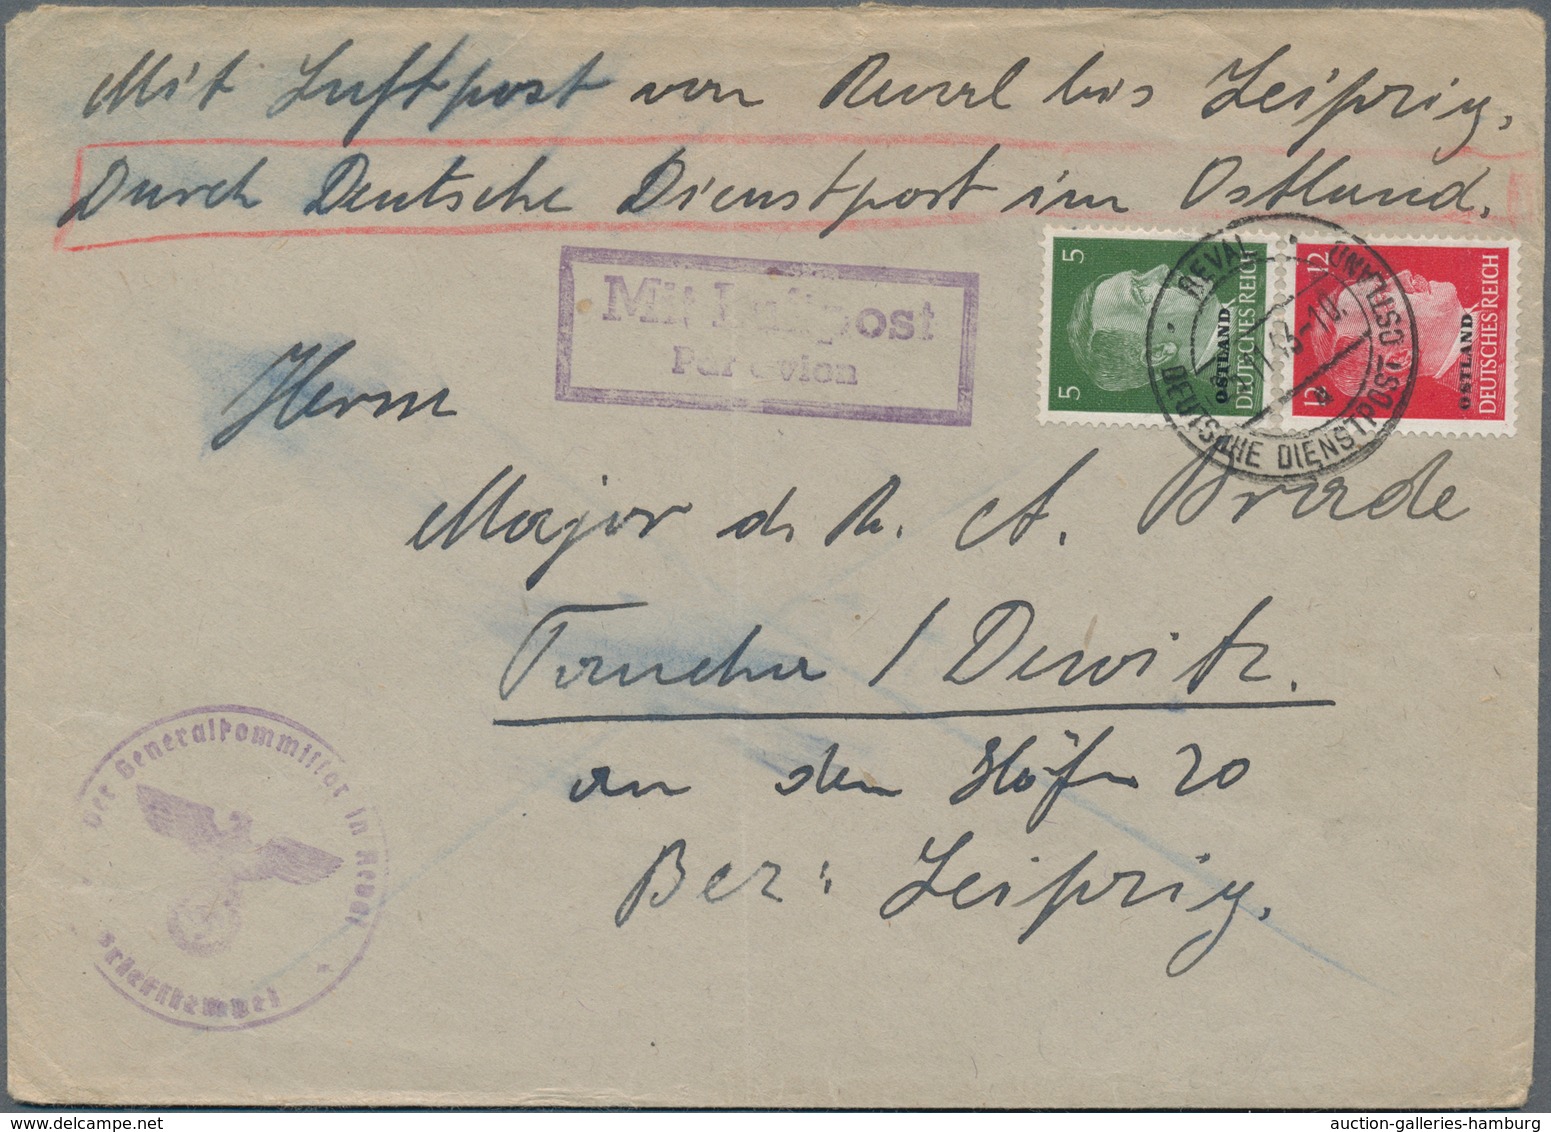 Mit Luftpost von Reval bis Leipzig,
Durch Deutsche Dienstpost im Ostland.
Mit Luftpost
Par avion
5 5
OSTLAND
DEUTSCHES REICH
12 12
OSTLAND
DEUTSCHES REICH
REVAL
OSTLAND
43-10.
a
DEUTSCHE DIENSTPOST
Herrn
Major d. R. A. Brade
Taucha / Dewitz.
an den Höfen 20
Bez: Leipzig.
Der Generalkommissar in Reval
Briefstempel
auction-galleries-hamburg